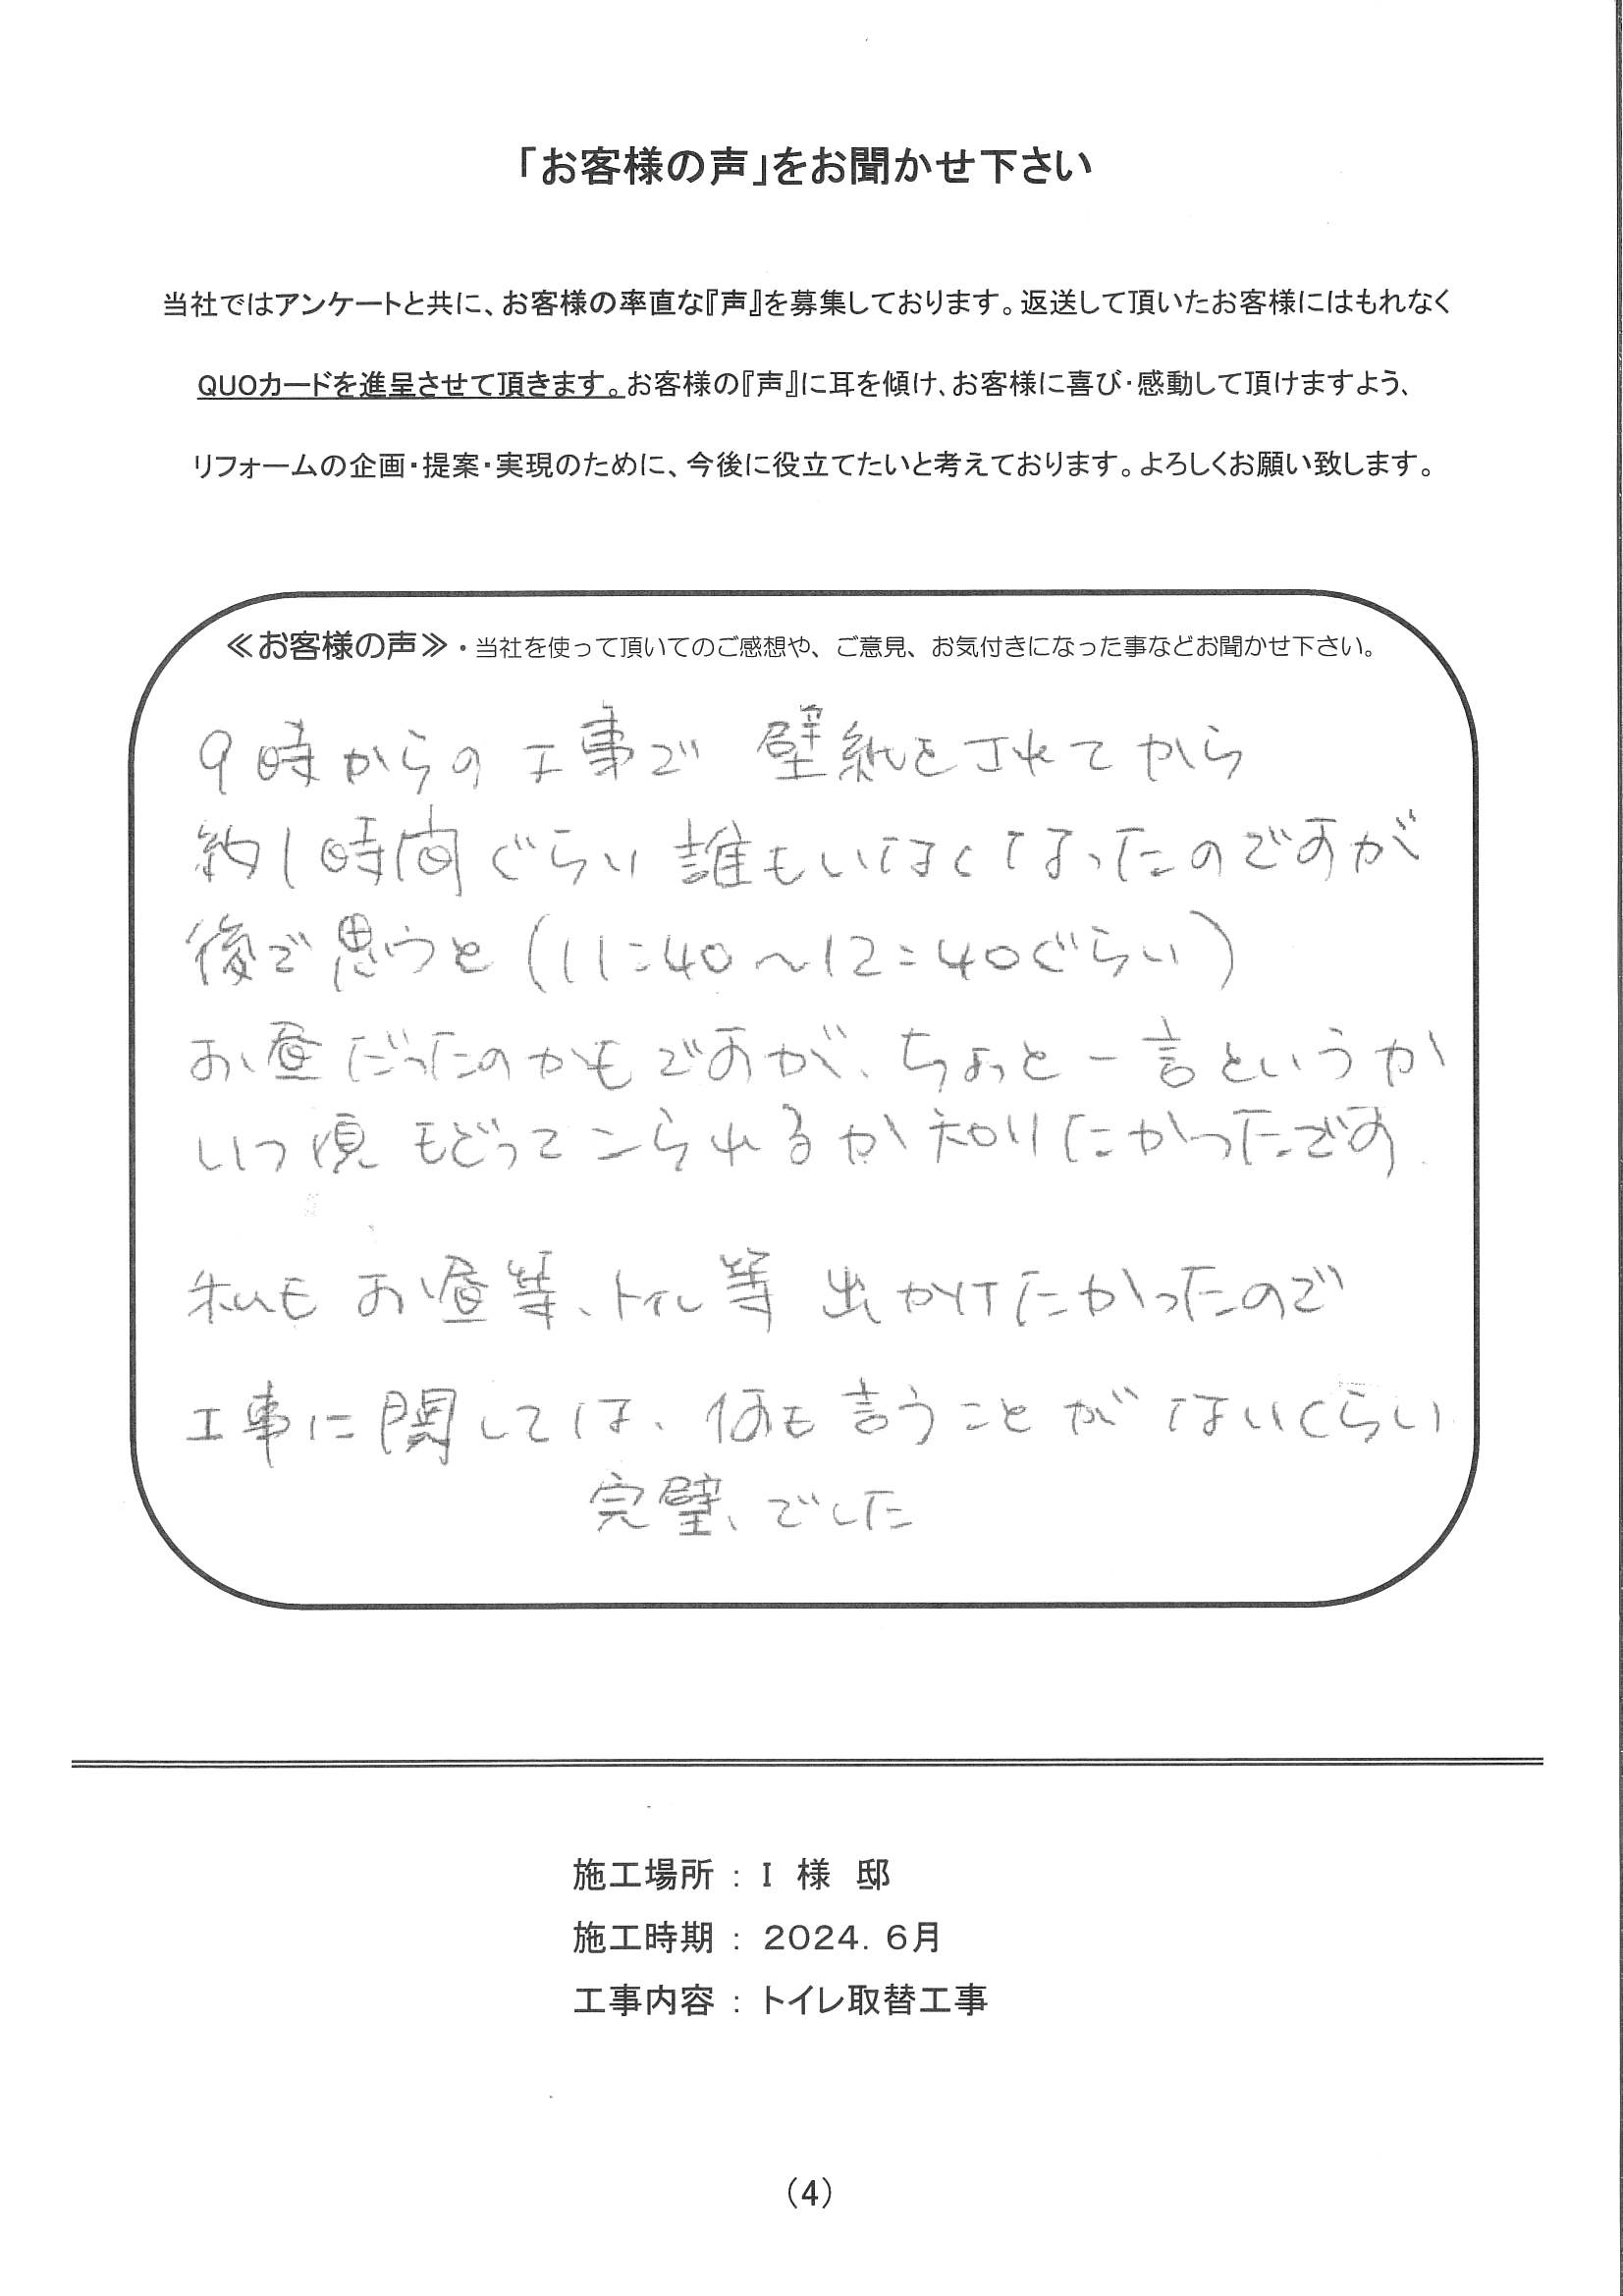 「お客様の声」をお聞かせ下さい
当社ではアンケートと共に、お客様の率直な『声』を募集しております。返送して頂いたお客様にはもれなく
QUOカードを進呈させて頂きます。お客様の『声』に耳を傾け、お客様に喜び・感動して頂けますよう、
リフォームの企画・提案・実現のために、今後に役立てたいと考えております。よろしくお願い致します。
≪お客様の声≫・当社を使って頂いてのご感想や、ご意見、お気付きになった事などお聞かせ下さい。
9時からの工事で 壁紙をされてから
約1時間ぐらい誰もいなくなったのですが
後で思うと(11:40～12:40ぐらい)
お昼だったのかもですが、ちょっと一言というか
いつ頃もどってこられるか知りたかったです
私もお昼等、トイレ等出かけたかったので
工事に関しては、何も言うことがないくらい
完璧、でした
施工場所 : I 様 邸
施工時期 : 2024. 6月
工事内容 : トイレ取替工事
(4)